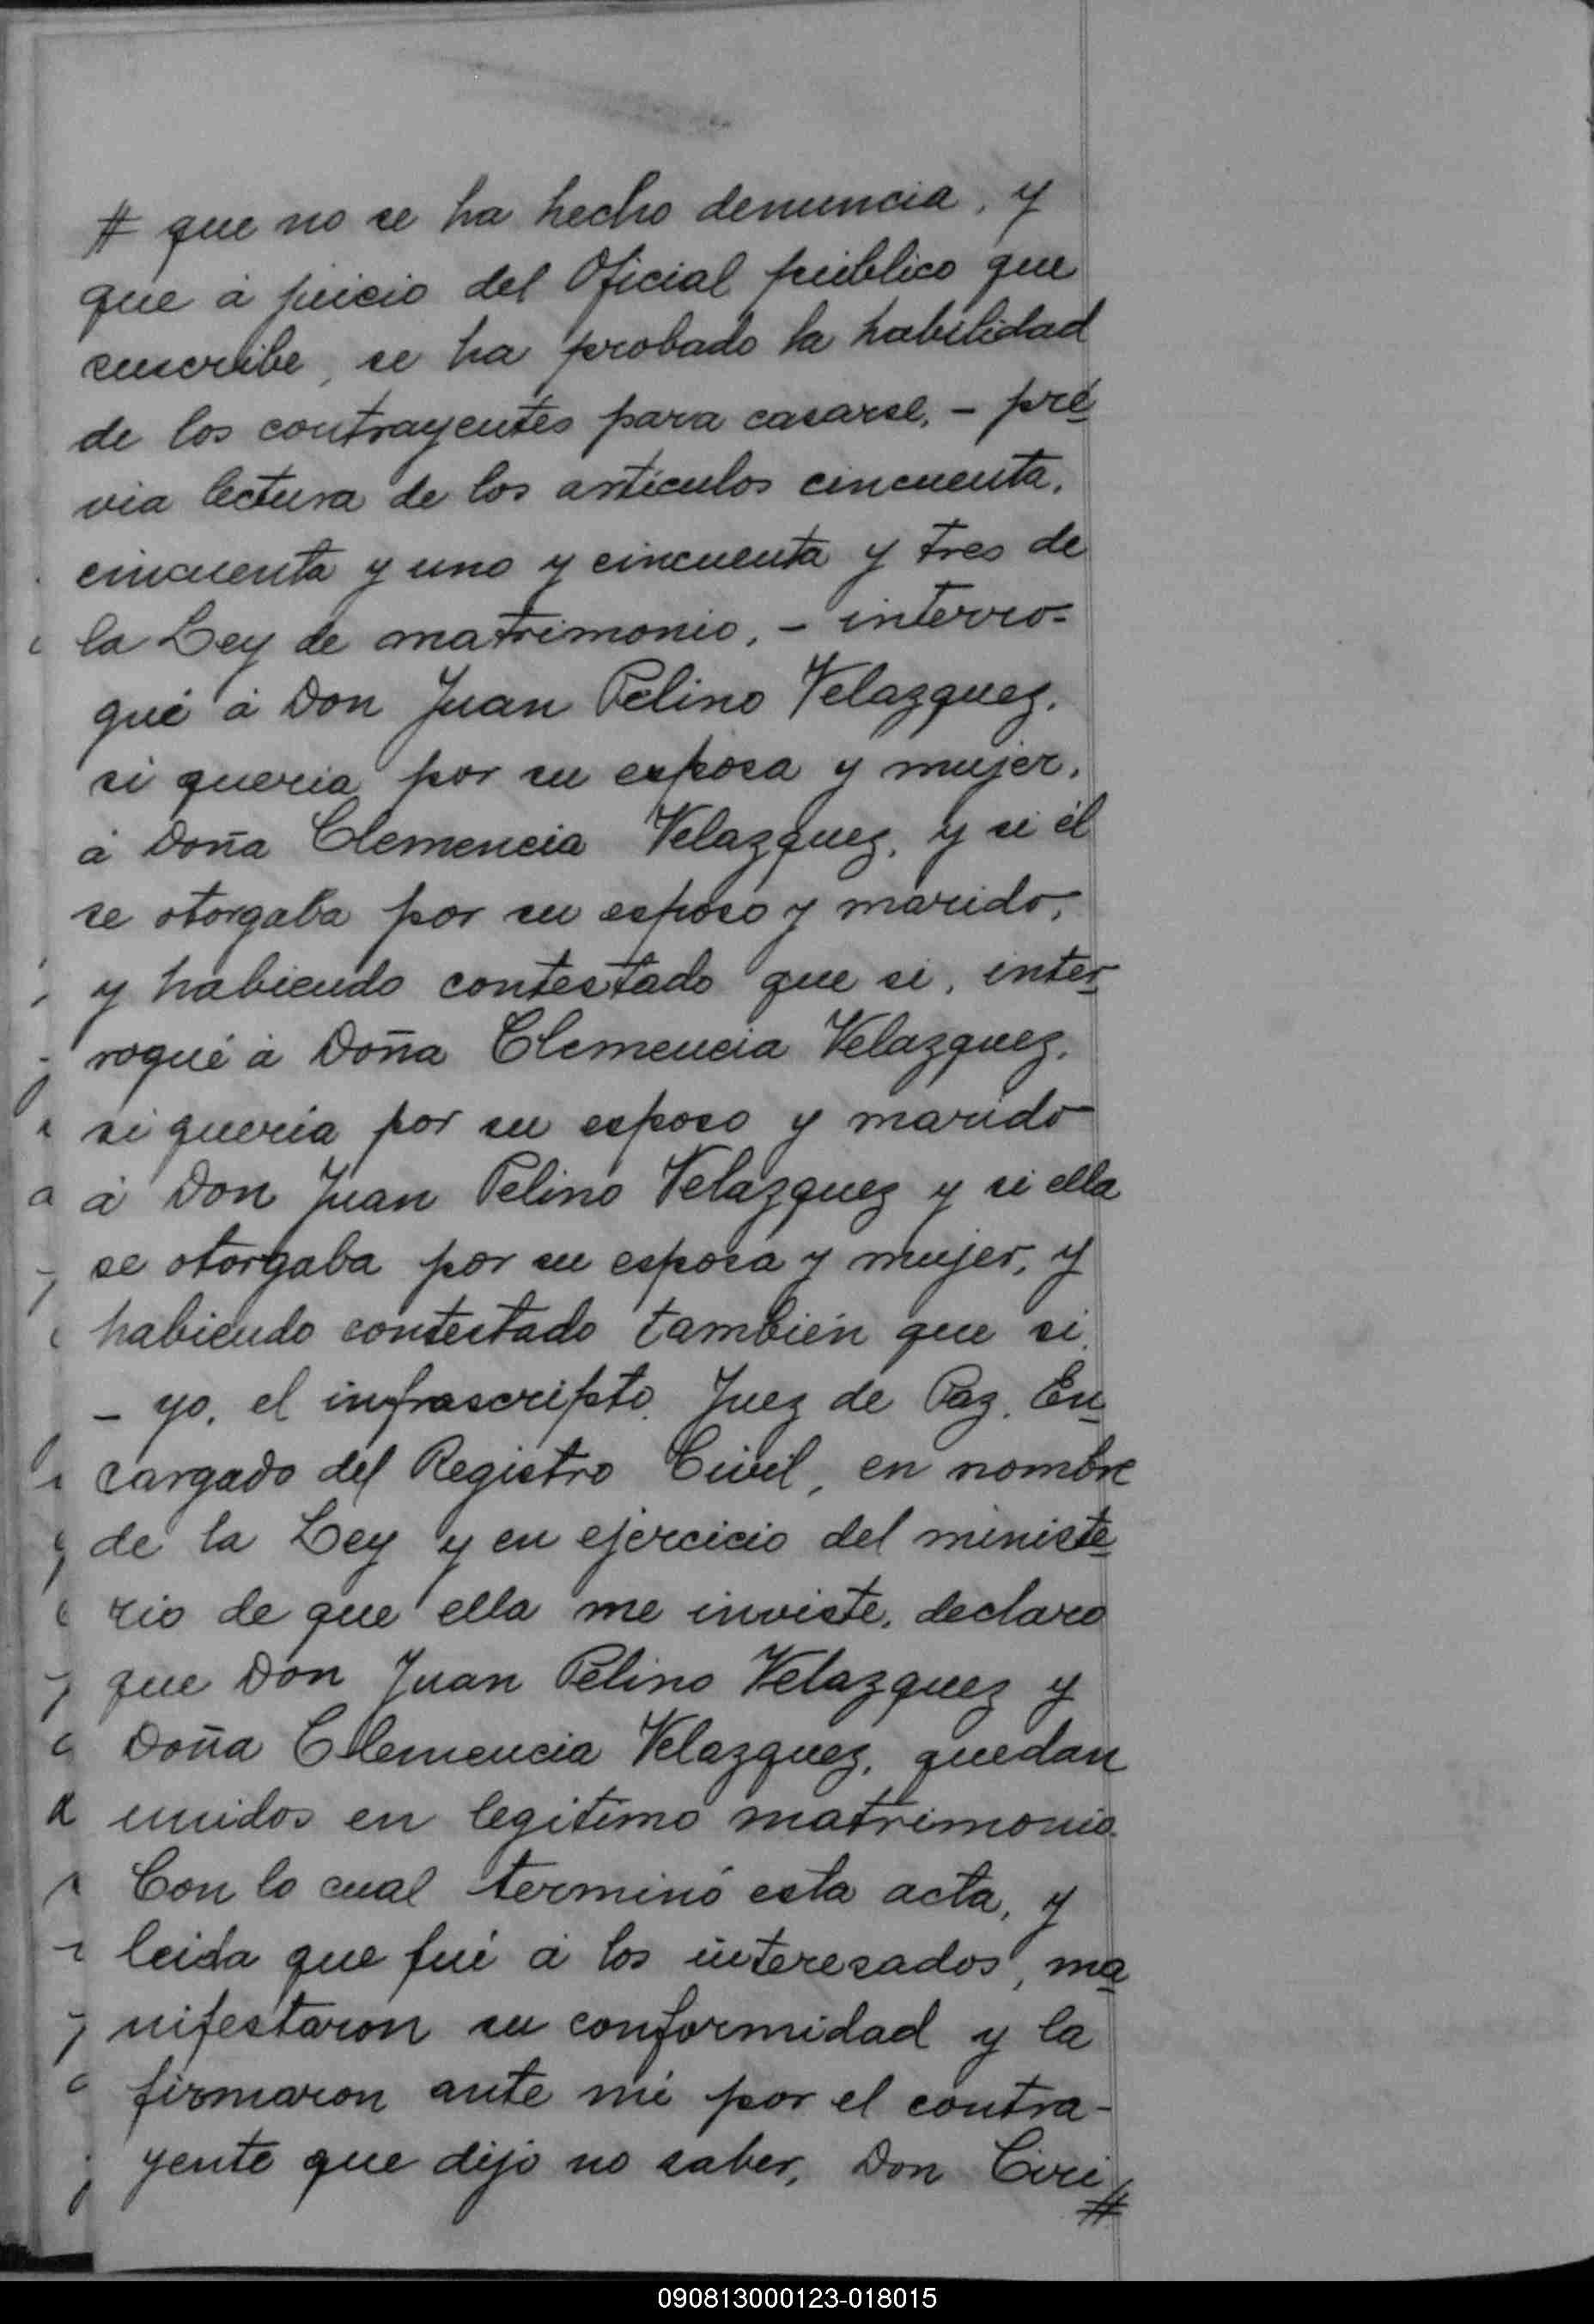 # que no se ha hecho denuncia, y
que á juicio del Oficial público que
suscribe, se ha probado la habilidad
de los contrayentes para casarse, - pre
via lectura de los artículos cincuenta,
cincuenta y uno y cincuenta y tres de
la Ley de matrimonio, - interro-
gué á Don Juan Pelino Velazquez,
si queria por su esposa y mujer,
á Doña Clemencia Velazquez, y si él
se otorgaba por su esposo y marido,
y habiendo contestado que si, inter
rogué á Doña Clemencia Velazquez,
si queria por su esposo y marido
á Don Juan Pelino Velazquez y si ella
se otorgaba por su esposa y mujer, y
habiendo contestado también que si,
- yo, el infrascripto, Juez de Paz, En
cargado del Registro Civil, en nombre
de la Ley y en ejercicio del ministe
rio de que ella me inviste, declaro
que Don Juan Pelino Velazquez y
Doña Clemencia Velazquez, quedan
unidos en legitimo matrimonio.
Con lo cual terminó esta acta, y
leida que fué á los interesados, ma
nifestaron su conformidad y la
firmaron ante mi por el contra-
yente que dijo no saber, Don Ciri
#
090813000123-018015